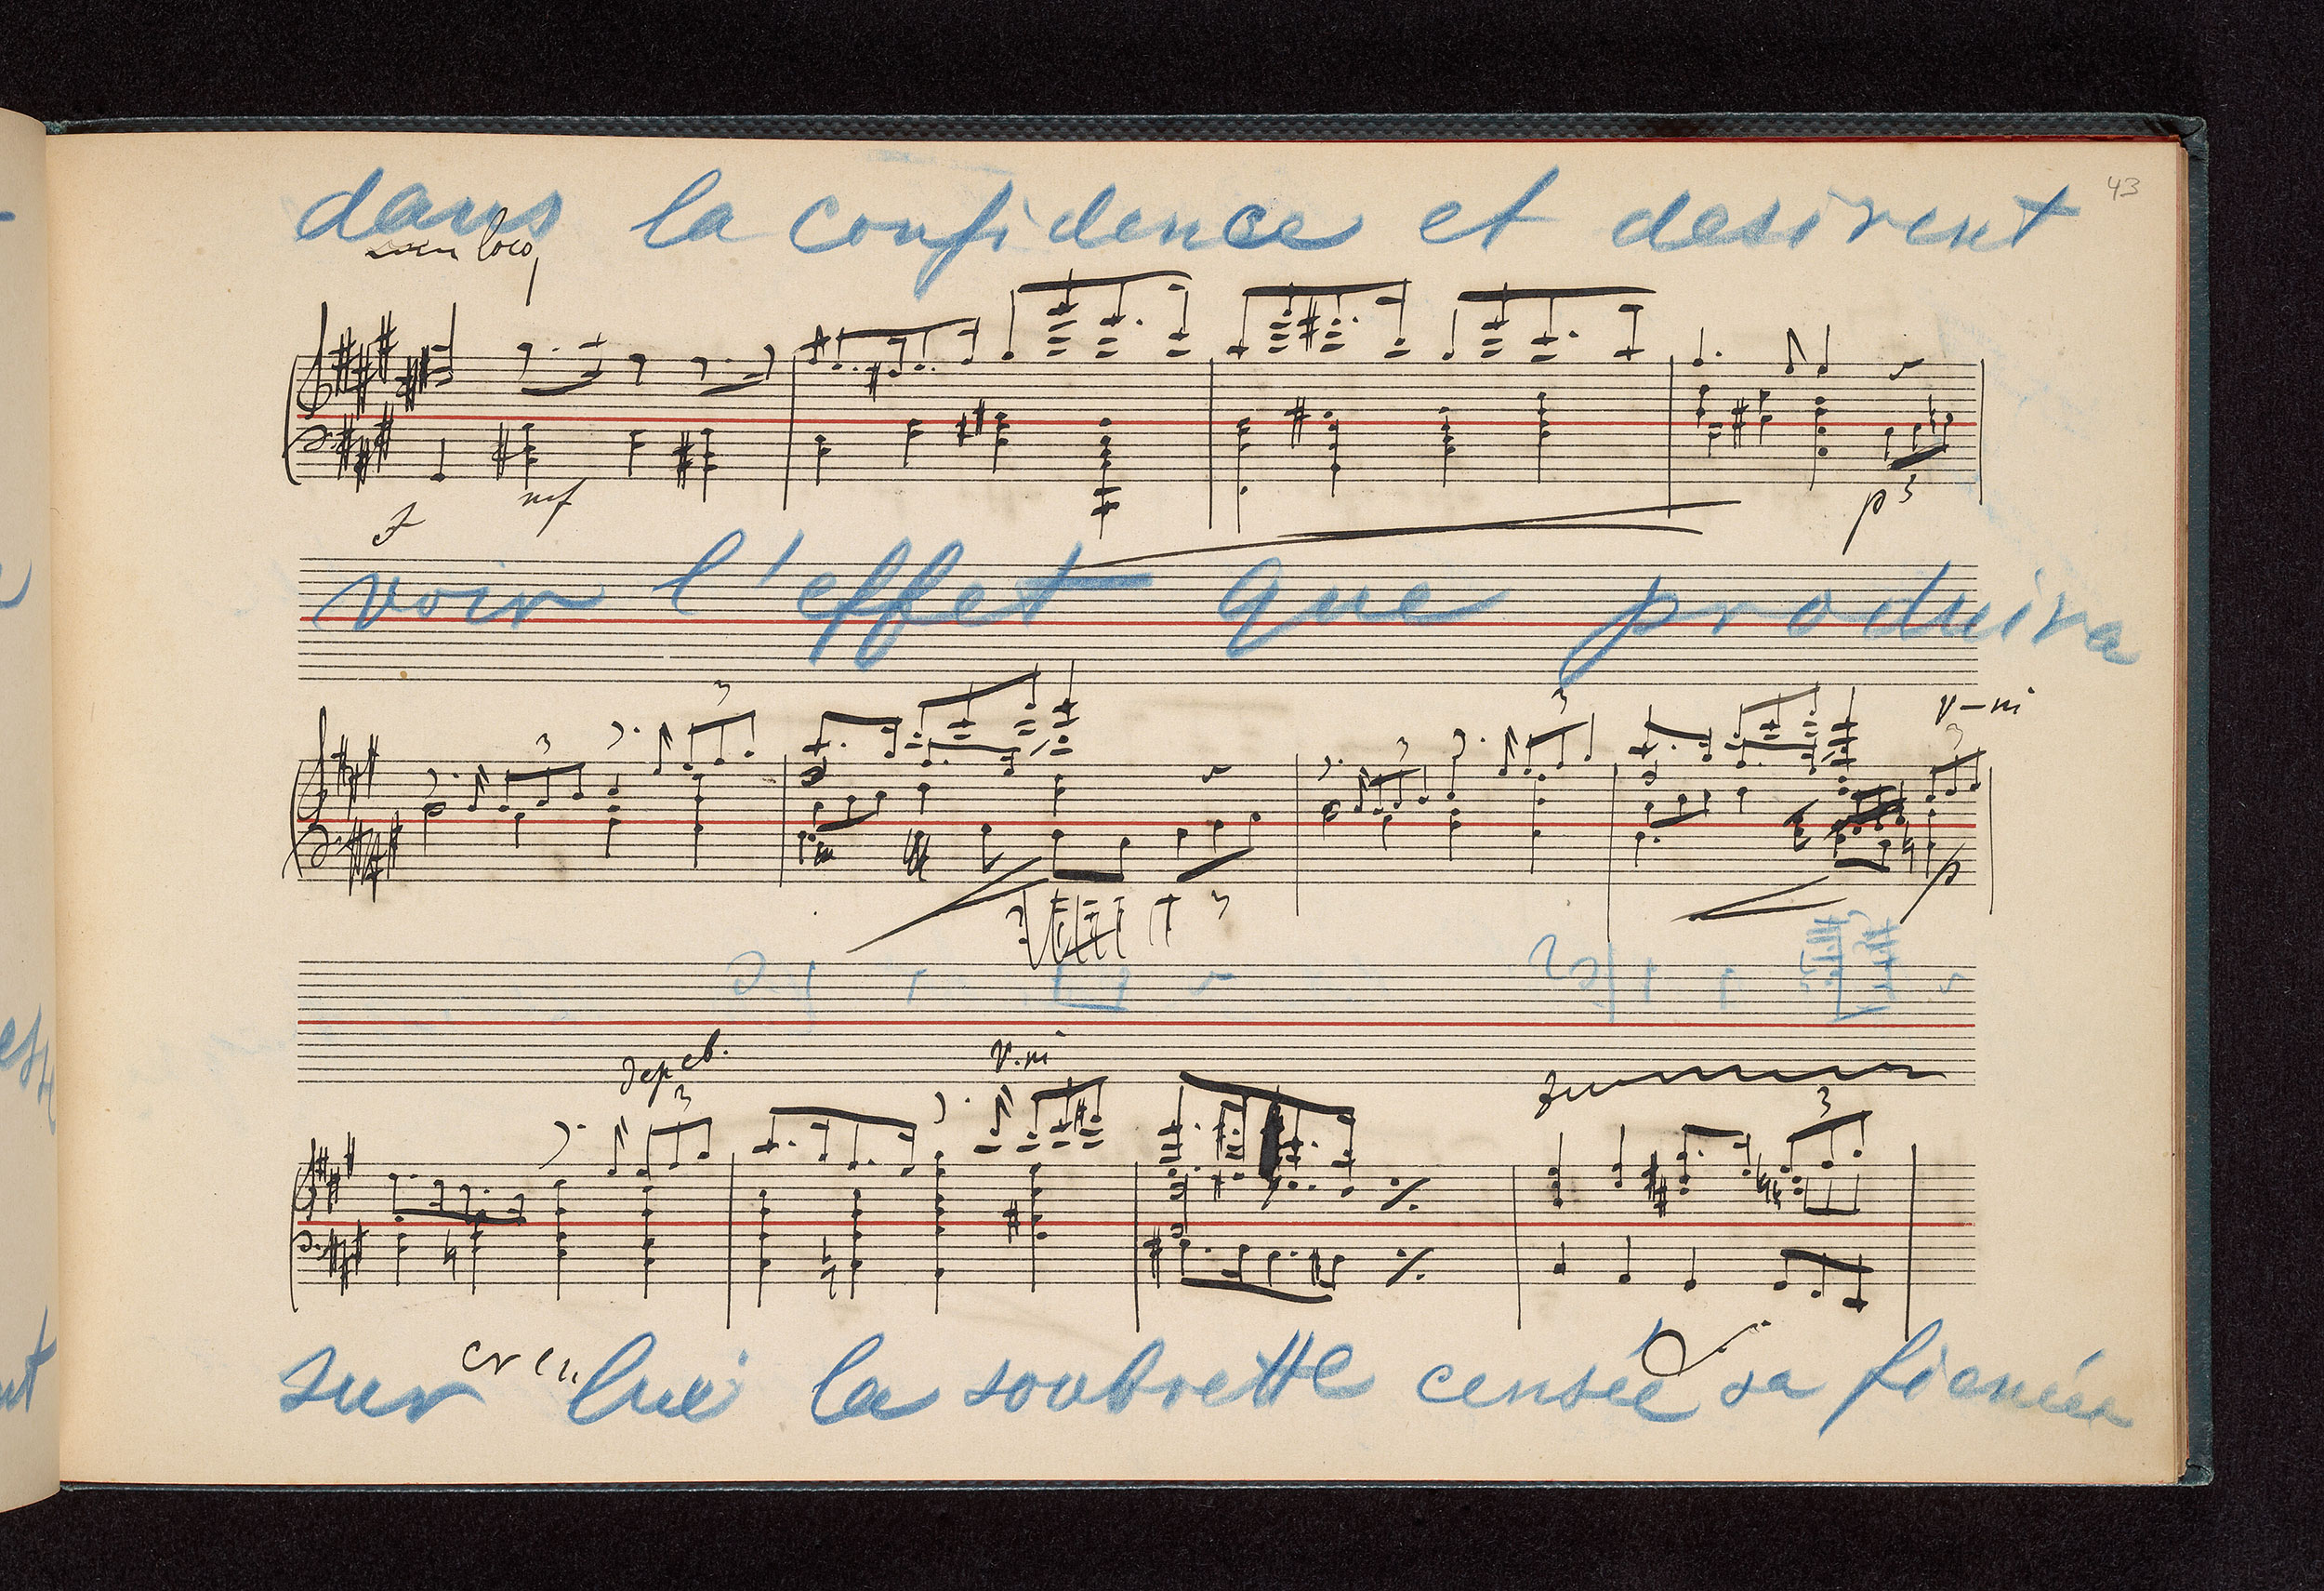 43
dans la confidence et desirent
loco
f mf p 3
voir l'effet que produira
3 3 3 3 v-ni 3
p
3
cb. v.ni
3 3
cresc.
sur lui la soubrette censée sa fiancée